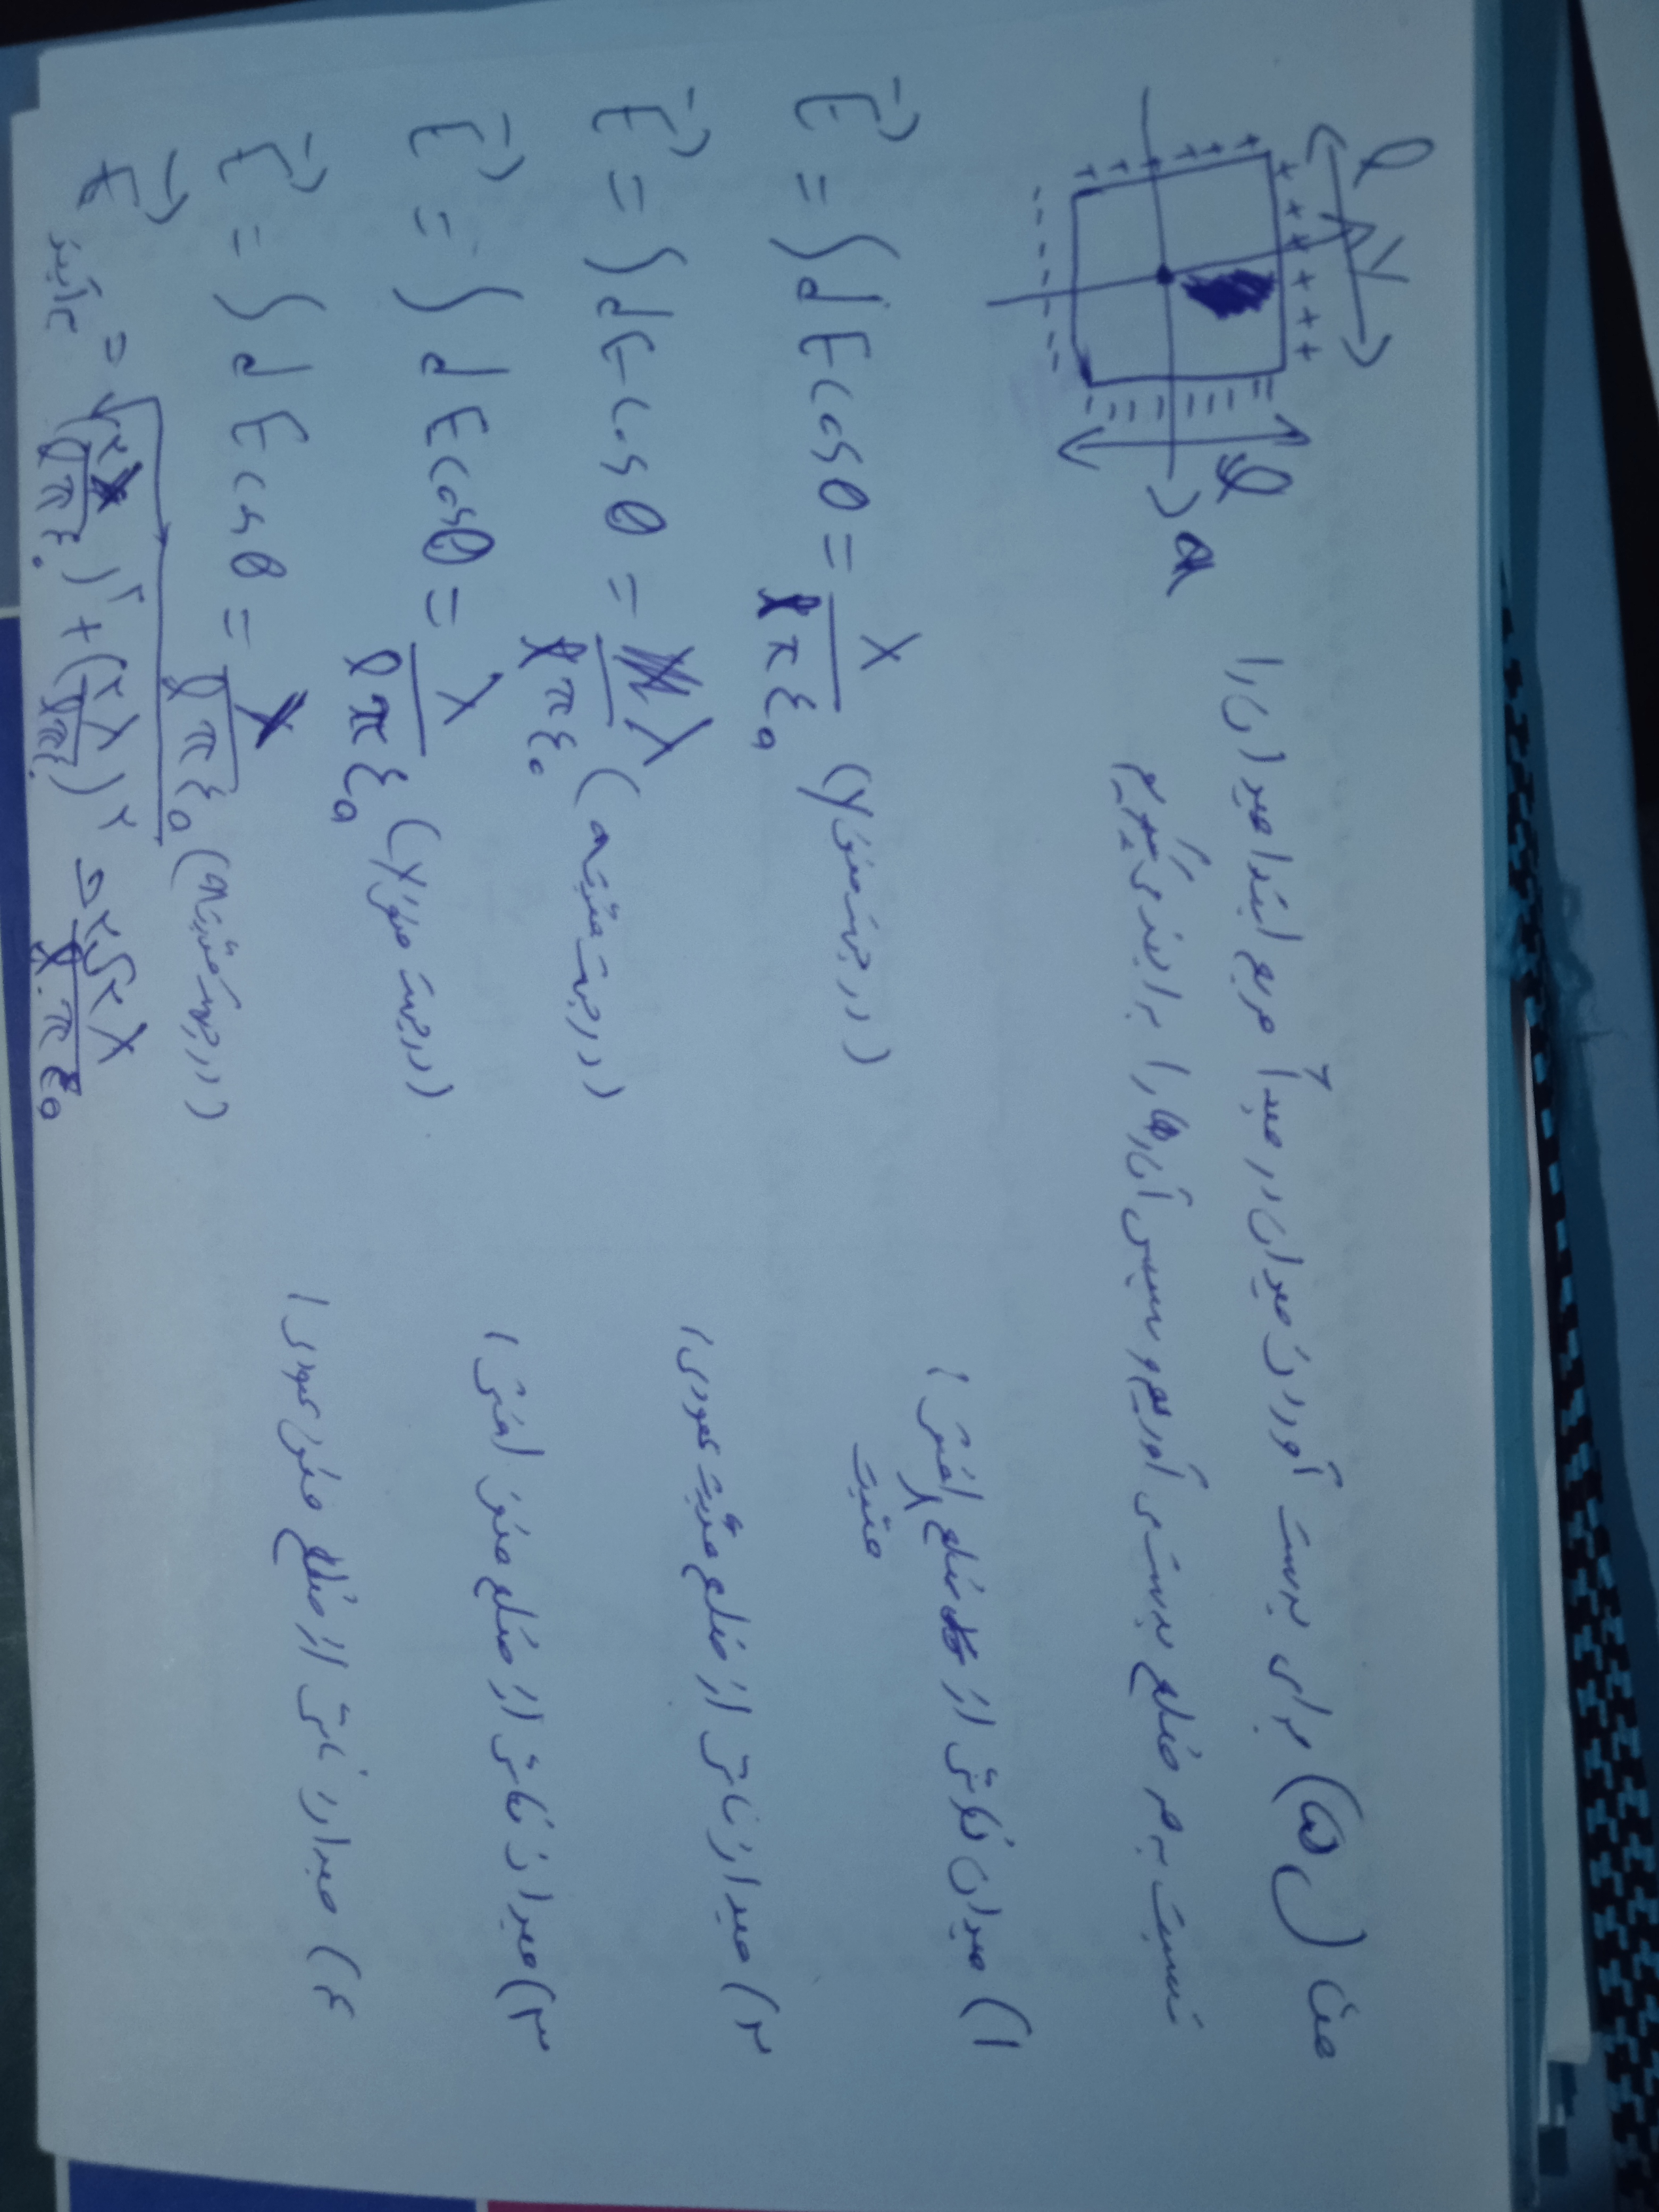 l
y
+ + + + + +
l
x
س ۵) برای بدست آوردن میدان در مبدأ مربع ابتدا میدان را
نسبت به هر ضلع بدست می آوریم و سپس آن ها را برایند می گیریم
۱) میدان ناشی از ضلع مثبت افقی:
E⃗ = ∫dE cosθ = λ/(lπε₀) (در جهت منفی y)
۲) میدان ناشی از ضلع مثبت عمودی:
E⃗ = ∫dE cosθ = λ/(lπε₀) (در جهت مثبت x)
۳) میدان ناشی از ضلع منفی افقی:
E⃗ = ∫dE cosθ = λ/(lπε₀) (در جهت منفی y)
۴) میدان ناشی از ضلع منفی عمودی:
E⃗ = ∫dE cosθ = λ/(lπε₀) (در جهت مثبت x)
E⃗ برآیند = √((۲λ/(lπε₀))² + (۲λ/(lπε₀))²) = ۲√۲λ/(lπε₀)